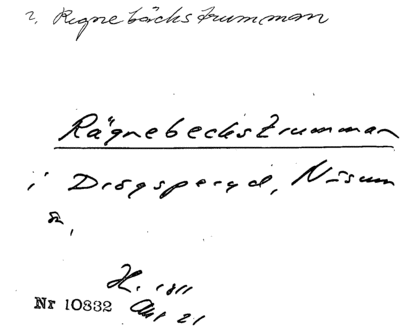 2. Regnebäckstrumman
Rägnebeckstrumman
i Drögsperyd, Näsum
sn,
H. 1811
Akt 21
Nr 10832